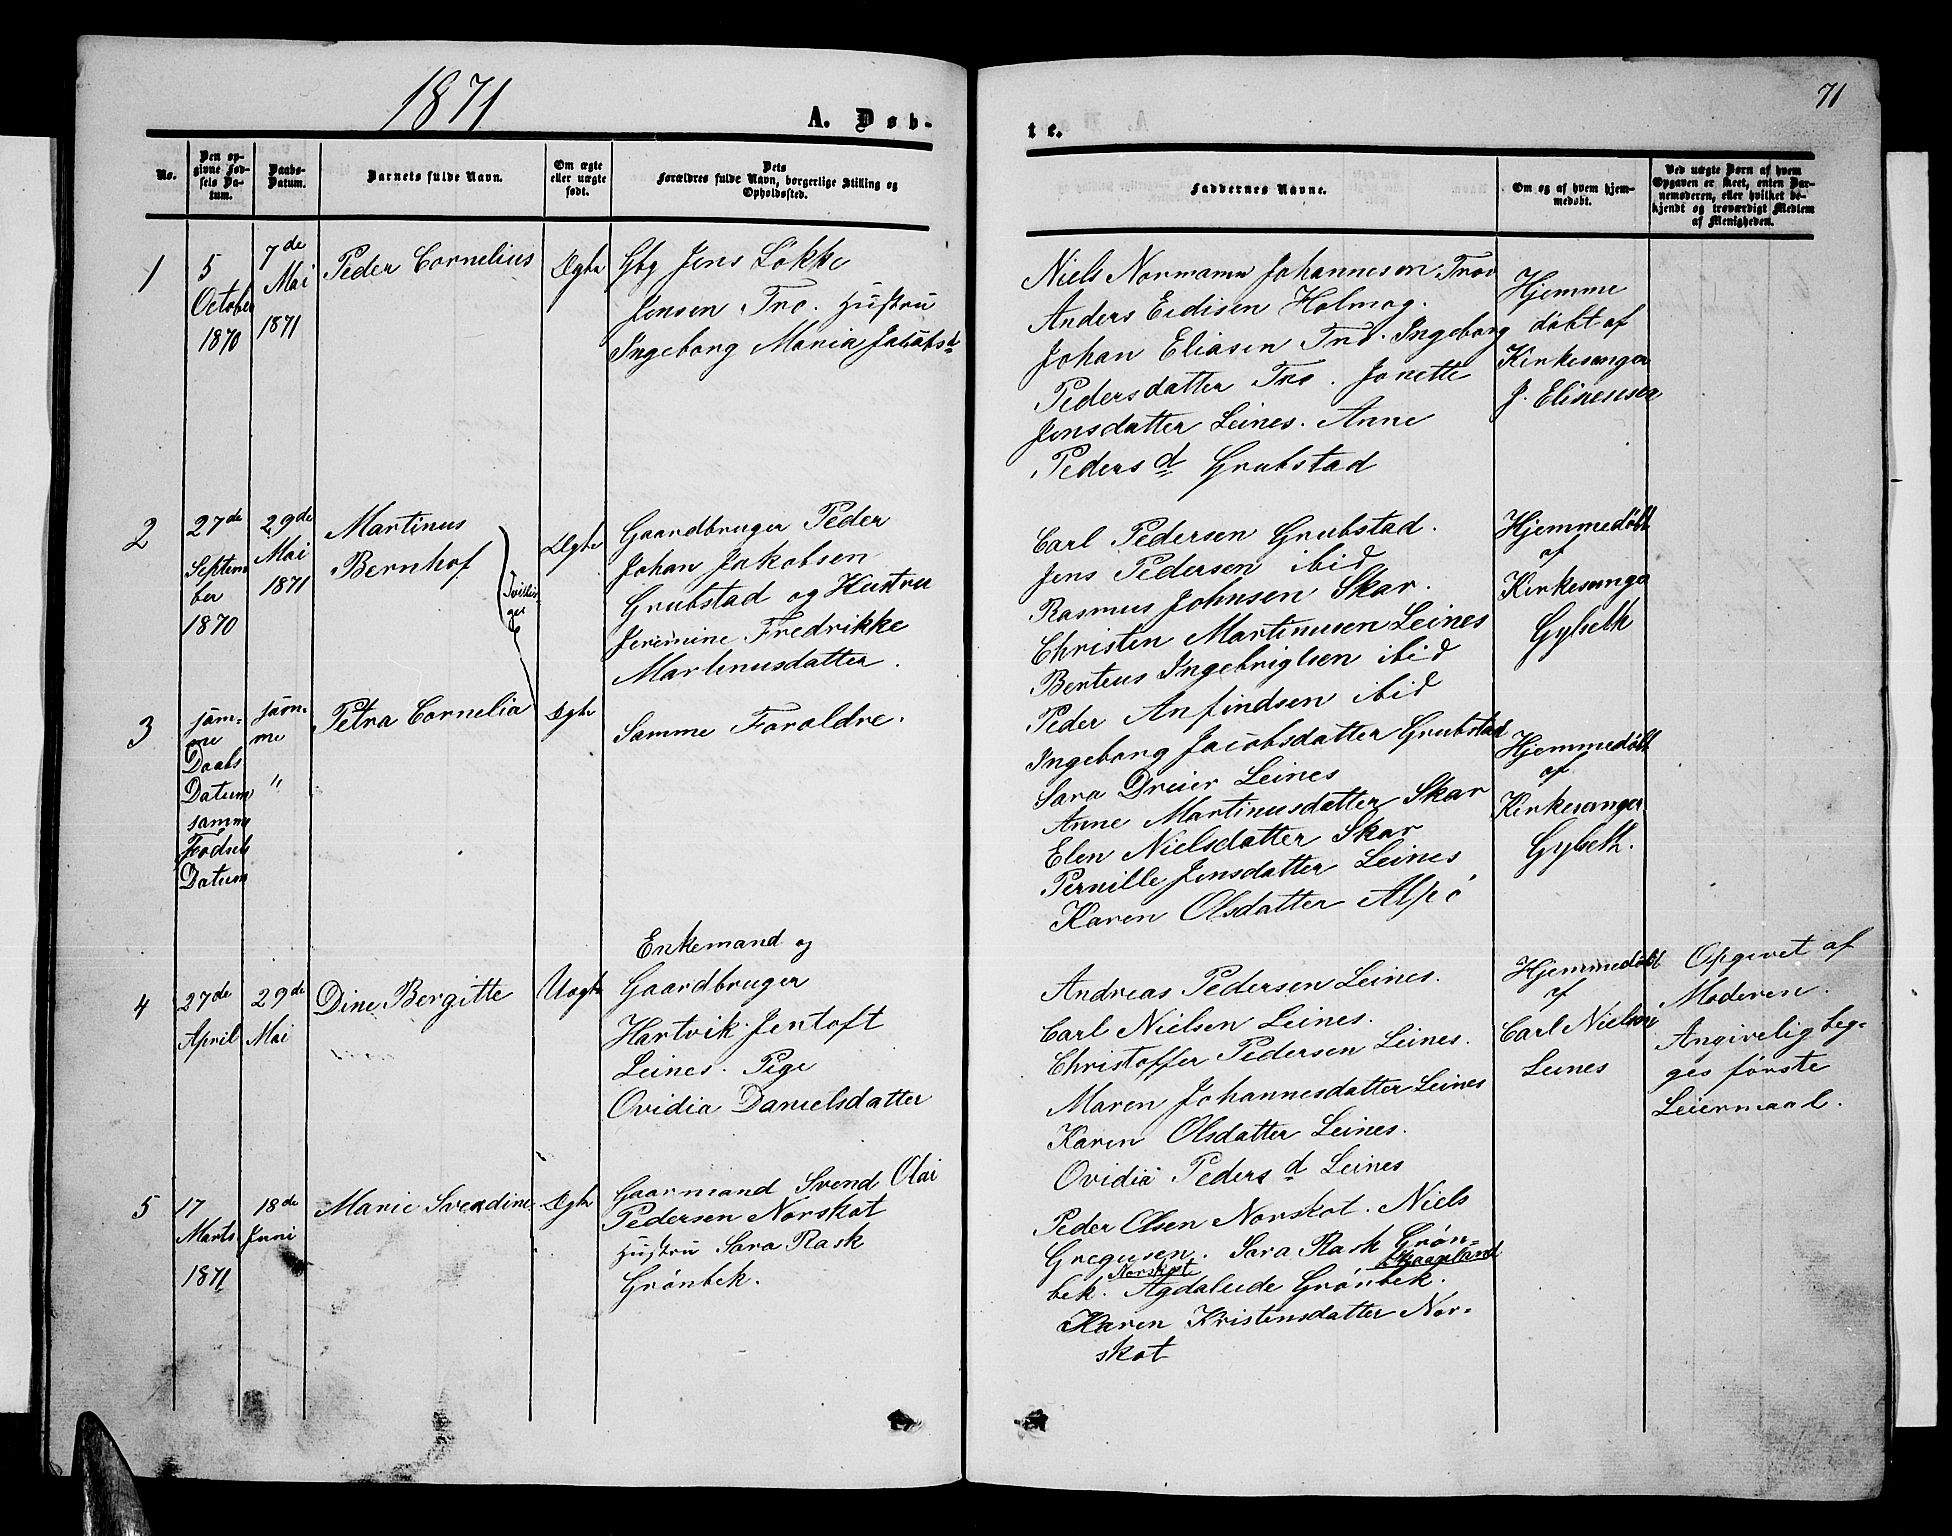 1871
71
A. Døb-
te.
No.
Den op-
givne Fød-
sels Da-
tum.
Daabs-
Datum.
Barnets fulde Navn.
Om ægte
eller uægte
født.
Dets
Forældres fulde Navn, borgerlige Stilling og
Opholdssted.
Faddernes Navne.
Om og af hvem hjem-
medøbt.
Ved uægte Børn af hvem
Opgaven er skeet, enten Bar-
nemoderen, eller hvilket be-
kjendt og troværdigt Medlem
af Menigheden.
1
5
October
1870
7de
Mai
1871
Peder Cornelius
Ægte
Gbg Jens Løkke
Jensen Tro. Hustru
Ingeborg Maria Jacobsd
Niels Normann Johannesen Tro
Anders Eidisen Holmag.
Johan Eliasen Tro. Ingeborg
Pedersdatter Tro. Jonette
Jensdatter Leines. Anne
Pedersd Grubstad
Hjemme
døbt af
Kirkesanger
J. Eliaesen
2
27de
Septem
ber
1870
29de
Mai
1871
Martinus
Bernhof
Tvillin-
ger
Ægte
Gaardbruger Peder
Johan Jakobsen
Grubstad og Hustru
Jeremine Fredrikke
Martinusdatter.
Carl Pedersen Grubstad.
Jens Pedersen ibid
Rasmus Johnsen Skar.
Christen Martinusen Leines
Berteus Ingebrigtsen ibid
Peder Anfindsen ibid
Hjemmedøbt
af
Kirkesanger
Gylseth
3
sam-
me
Daabs
Datum
samme
Fødsels
Datum
sam-
me
"
Petra Cornelia
Ægte
Samme Foraldre.
Ingeborg Jacobsdatter Grubstad
Sara Dreier Leines
Anne Martinusdatter Skar
Elen Nielsdatter Skar
Pernille Jensdatter Leines
Karen Olsdatter Alpø
Hjemmedøbt
af
Kirkesanger
Gylseth.
4
27de
April
29de
Mai
Dine Bergitte
Uægte
Enkemand og
Gaardbruger
Hartvik Jentoft
Leines. Pige
Ovidia Danielsdatter
Andreas Pedersen Leines.
Carl Nielsen Leines.
Christoffer Pedersen Leines.
Maren Johannesdatter Leines
Karen Olsdatter Leines.
Ovidia Pedersd Leines
Hjemmedøbt
af
Carl Nielsen
Leines
Opgivet af
Moderen.
Angivelig beg-
ges første
Leiermaal.
5
17
Marts
1871
18de
Juni
Marie Svendine
Ægte
Gaarmand Svend Olai
Pedersen Norskot
Hustru Sara Rask
Grønbek.
Peder Olsen Norskot. Niels
Gregusen. Sara Rask Grøn-
Norskot
bek. Agdaleide Grønbek.
Karen Kristensdatter Nor-
skot